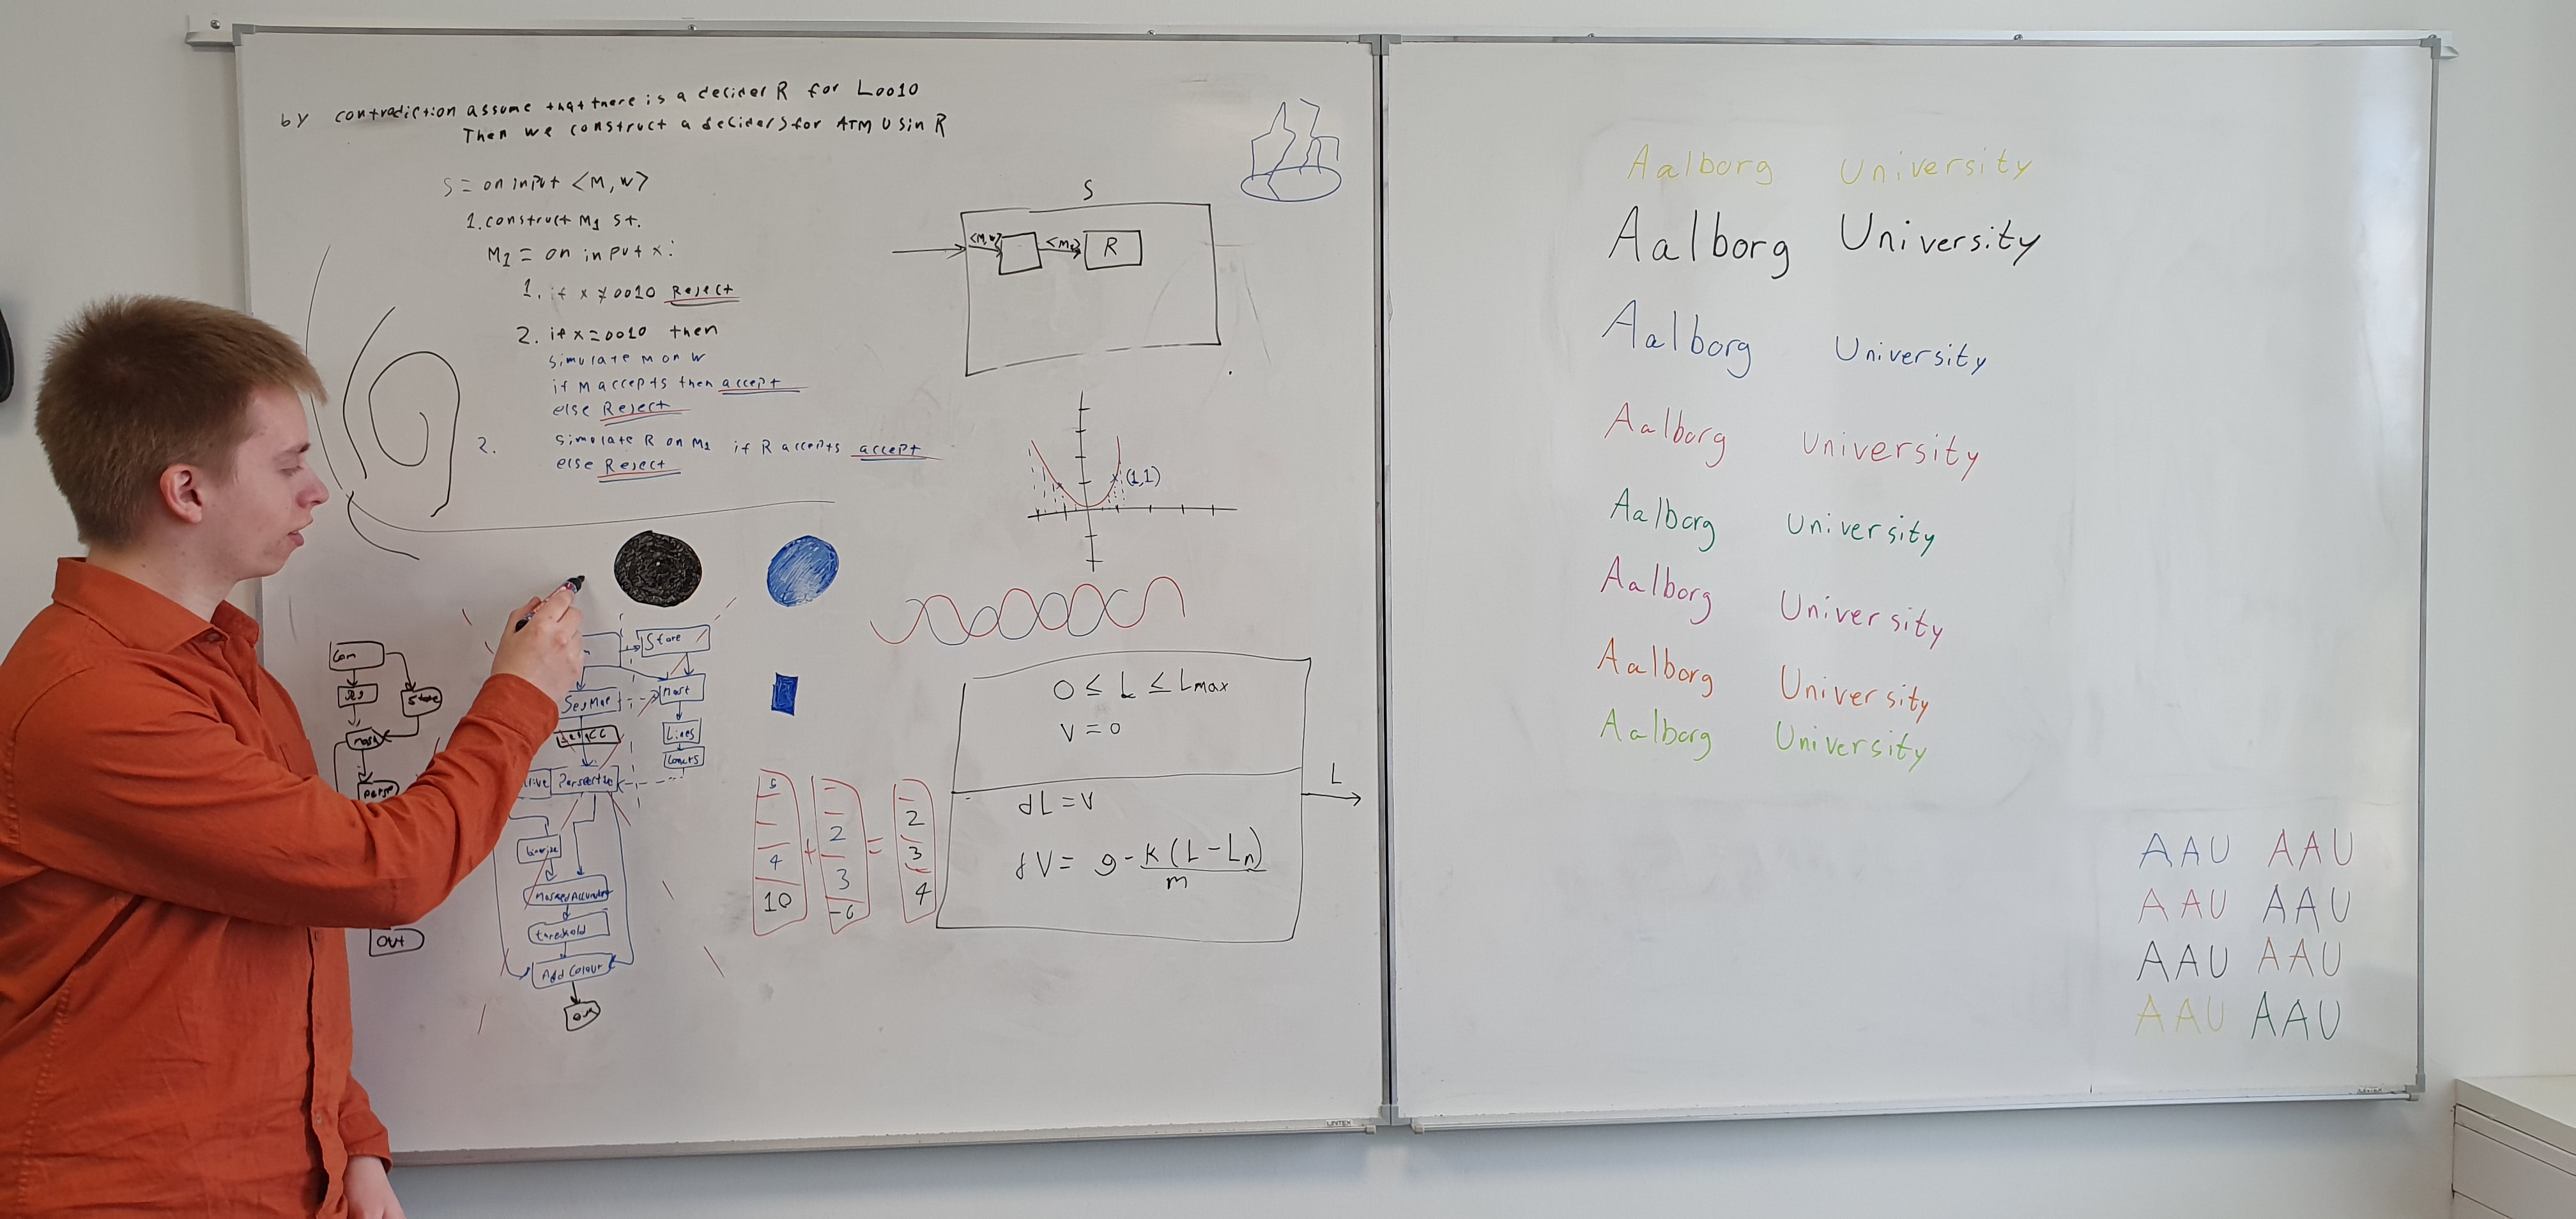 by contradiction assume that there is a decider R for L0010
Then we construct a decider S for ATM Usin R
S = on input <M, w>
1. construct M1 st.
M1 = on input x:
1. if x ≠ 0010 Reject
2. if x = 0010 then
simulate M on w
if M accepts then accept
else Reject
2. simulate R on M1 if R accepts accept
else Reject
S
<M,w>
<M1>
R
(1,1)
Com
Seg
Store
Mask
Perspe
OUT
Store
SegMap
Mask
Lines
Perspective
Binarize
threshold
Add Colour
Out
5
4
10
+
2
3
-6
=
2
3
4
0 ≤ L ≤ Lmax
V = 0
dL = V
dV = g - k(L - Ln)
m
L
Aalborg University
Aalborg University
Aalborg University
Aalborg University
Aalborg University
Aalborg University
Aalborg University
Aalborg University
AAU AAU
AAU AAU
AAU AAU
AAU AAU